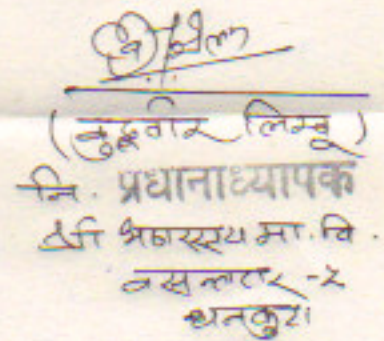 (बुद्धवीर लिम्बू)
नि. प्रधानाध्यापक
श्री मा. वि.
वसन्तटार - २
धनकुटा